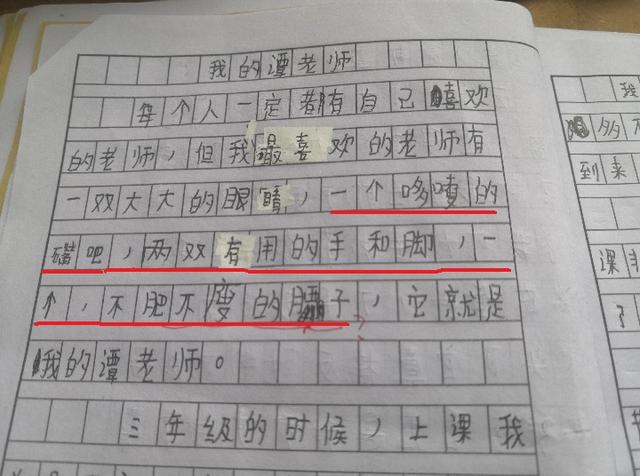 我的潭老师
每个人一定都有自己喜欢
的老师,但我最喜欢的老师有
一双大大的眼睛,一个哆嗦的
嘴吧,两双有用的手和脚,一
个,不肥不瘦的肚子,它就是
我的潭老师。
三年级的时候,上课我
我
多多
到来
课
了